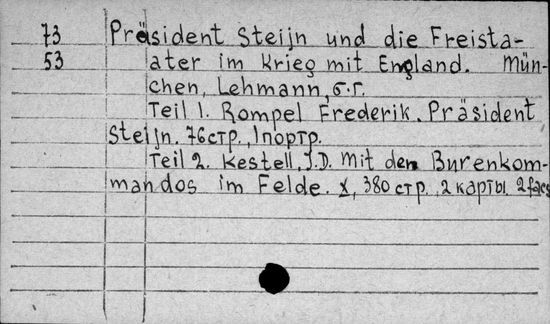 73 Präsident Steijn und die Freista-
53 ater im Krieg mit England. Mün-
chen, Lehmann, б.г.
Teil 1. Rompel Frederik. Präsident
Steijn. 76 стр., 1 портр.
Teil 2. Kestell, J.D. Mit den Burenkom-
mandos im Felde. X, 380 стр., 2 карты. 2 facs